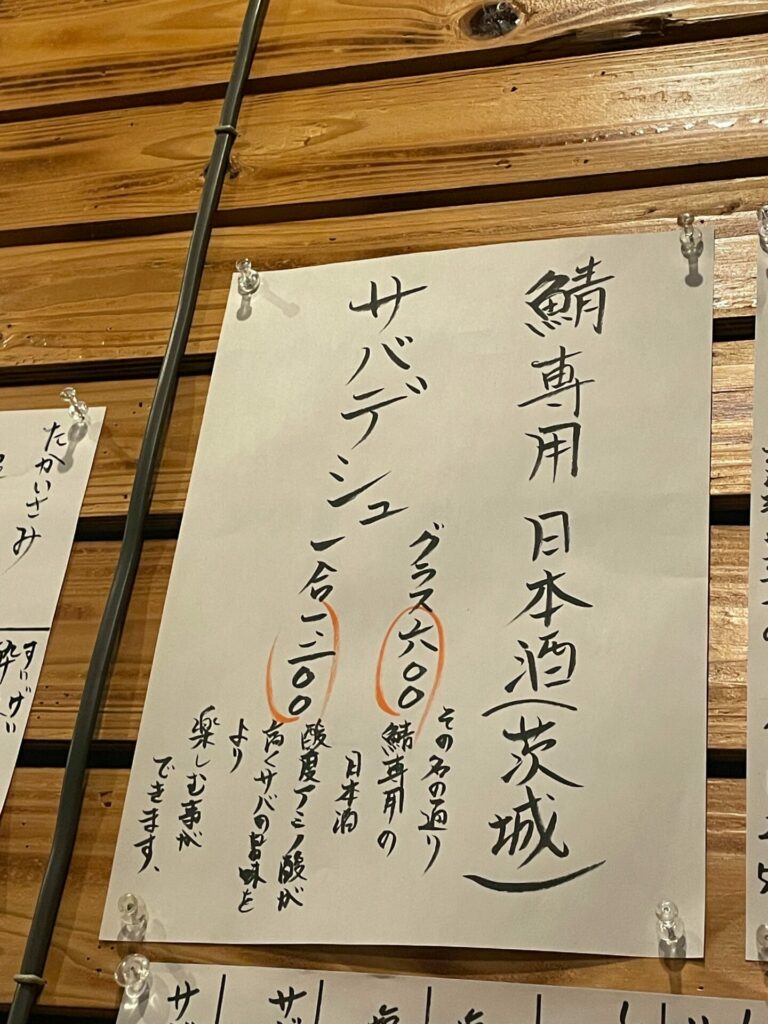 鯖専用日本酒(茨城)
サバデシュ
グラス六〇〇
一合一三〇〇
その名の通り
鯖専用の
日本酒
酸度アミノ酸が
高くサバの旨味を
より
楽しむ事が
できます、
たかいさみ
すいげい
酔